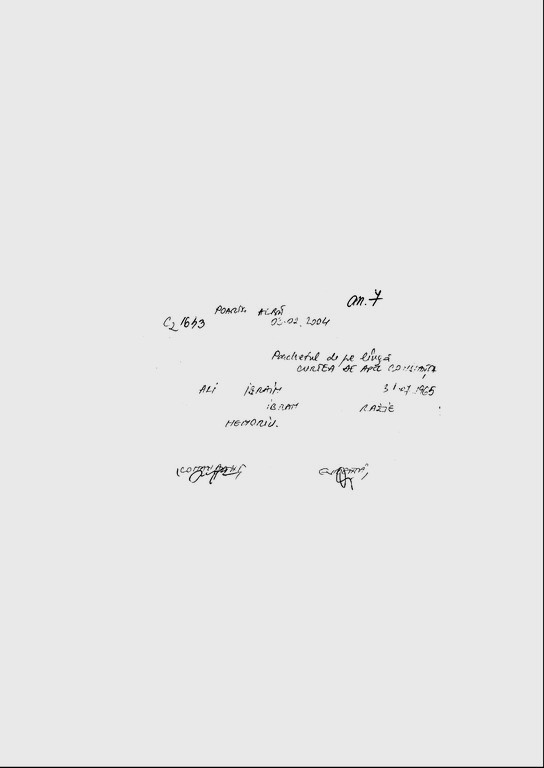 an. 7
POARTA ALBĂ
C2 1643 03.02.2004
Parchetul de pe lîngă
CURTEA DE APEL CONSTANȚA
ALI IBRAIM 31 07 1965
IBRAM RAZIE
MEMORIU.